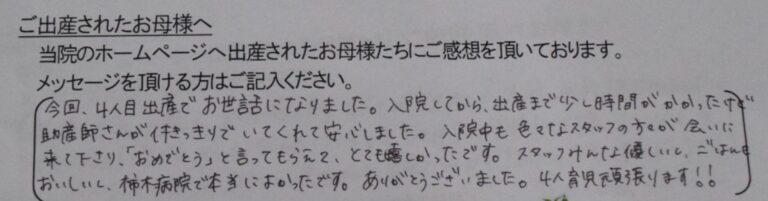 ご出産されたお母様へ
当院のホームページへ出産されたお母様たちにご感想を頂いております。
メッセージを頂ける方はご記入ください。
今回、4人目出産でお世話になりました。入院してから、出産まで少し時間がかかったけど
助産師さんが付きっきりでいてくれて安心しました。入院中も色々なスタッフの方々が会いに
来て下さり、「おめでとう」と言ってもらえて、とても嬉しかったです。スタッフみんな優しいし、ごはんも
おいしいし、柿木病院で本当によかったです。ありがとうございました。4人育児頑張ります!!